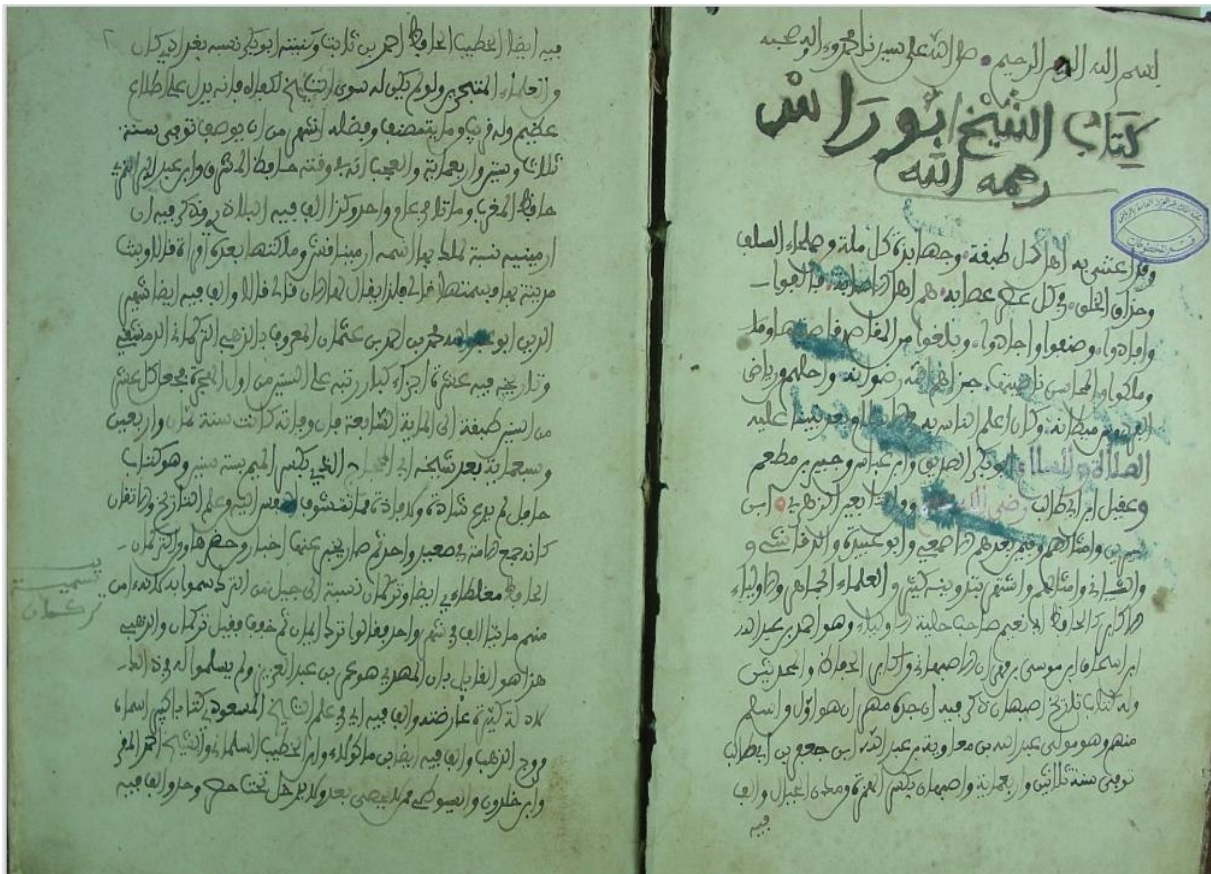 بسم الله الرحمن الرحيم صلى الله على سيدنا محمد وءاله وصحبه
كتاب الشيخ ابو راس
رحمه الله
وقد اعتنى به اهل كل طبقة وجهابذة كل ملة وصلحاء السلف
وحذاق الخلق في كل عصر
وافادوا وصنفوا واجادوا وبلغوا من المقاصد
وملكوا من المحاسن ناصيتها جزاهم الله رضوانه واحلهم رياض
وكان اعلم الناس به
الصلاة والسلام ابو بكر الصديق وابن عباس وجبير بن مطعم
وعقيل ابن ابي طالب رضي الله الزهري ابن
سيرين وامثالهم وممن بعدهم الاصمعي وابو عبيدة والرقاشي و
والشيباني وامثالهم واشتهر بتدوينه كثير من العلماء الجماهر والاولياء
الاكابر كالحافظ ابي نعيم صاحب حلية الاولياء وهو احمد بن عبد الله
ابن اسحاق ابن موسى بن مهران الاصبهاني من اكابر الحفاظ والمحدثين
وله كتاب تاريخ اصبهان ذكر فيه ان جده مهران هو اول من اسلم
منهم وهو مولى عبد الله بن معاوية بن عبد الله ابن جعفر بن ابي طالب
توفى سنة ثلاثين واربعماية واصبهان بكسر الهمزة ومدن الجبال والف
فيه
فيه ايضا الخطيب الحافظ احمد بن ثابت وكنيته ابو بكر نسبه بغدادي كان
من العلماء المتبحرين ولو لم يكن له سوى التاريخ لكفاه فانه يدل على اطلاع
عظيم وله قريب من ماية مصنف وفضله اشهر من ان يوصف توفى سنة
ثلاث وستين واربعماية والعجب انه في وقته حافظ المشرق وابن عبد البر
حافظ المغرب وماتا في عام واحد وكذا الف فيه البلاذري وذكر فيه ان
ارمينيه نسبة لملك بها اسمه ارميناقش وملكتها بعده امراة قالا وبنت
مدينة بها وسمتها قالي قلا
الدين ابو عبد الله محمد بن احمد بن عثمان المعروف بالذهبي التركماني الدمشقي
وتاريخه فيه عشرة اجزاء كبار رتبه على السنين من اول الهجرة يجعل كل عشر
من السنين طبقة الى الماية الثامنة فان وفاته كانت سنة ثمان واربعين
وسبعماية بعد شيخه ابي الحجاج المزي بكسر الميم بسته سنين وهو كتاب
حافل لم يدع شاذة ولا فاذة مما تتشوف النفس اليه وعلم التاريخ
كانه جمع الامة في صعيد واحد ثم صار يخبر عنها اخبار من حضرها ووالتركمان
الحافظ مغلطاي ايضا وتركمان نسبة الى جيل من الترك سموا به لانه امن
منهم مايتا الف في شهر واحد فقالوا ترك ايمان ثم خفف فقيل تركمان والذهبي
هذا هو القايل بان المهدي هو عمر بن عبد العزيز ولم يسلموا له في ذلك
لادلة كثيرة عارضته والف فيه اي في علم التاريخ المسعودي كتابا كبيرا سماه
مروج الذهب والف فيه ايضا بن ماكولاء وابن الخطيب السلماني والشيخ احمد المقري
وابن خلدون والسيوطي بعد ولا يدخل تحت حصر وحد والف فيه
تسمية
تركمان